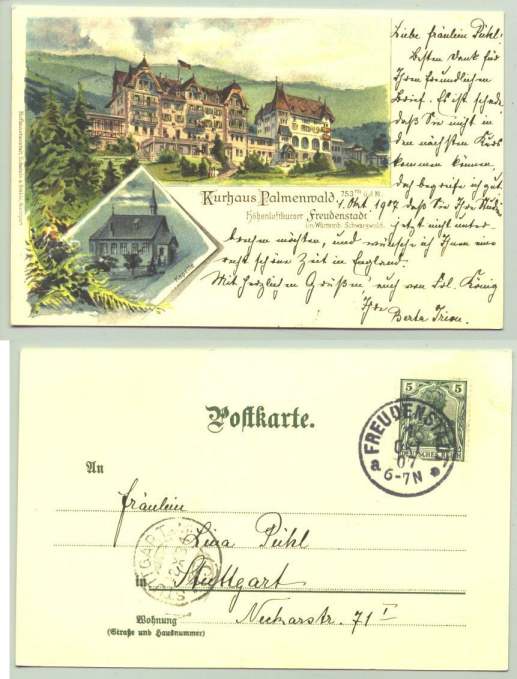 Liebe Fräulein Pühl:
besten Dank für
Ihren freundlichen
Brief. Es ist schade
daß Sie nicht in
den nächsten Kurs
kommen können,
doch begreife ich gut
Kurhaus Palmenwald 753 m ü. M.
Höhenluftkurort "Freudenstadt"
im Württemb. Schwarzwald.
1. Okt. 1907 daß Sie Ihre
jetzt nicht unter
brechen möchten, und wünsche ich Ihnen eine
recht schöne Zeit in England.
Mit herzlichen Grüßen, auch von Frl. König
Ihre
Berta
Kapelle
Postkarte.
FREUDENSTADT
OKT
07
a 6-7N
5 5
DEUTSCHES REICH
An
Fräulein
Lina Pühl
STUTTGART
in Stuttgart
Wohnung
(Straße und Hausnummer)
Neckarstr. 71 I